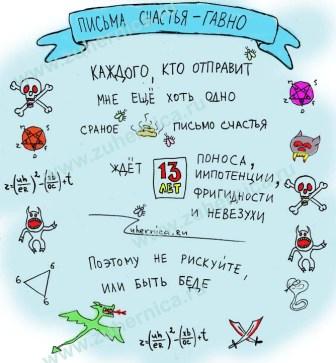 ПИСЬМА СЧАСТЬЯ - ГАВНО
КАЖДОГО, КТО ОТПРАВИТ
МНЕ ЕЩЁ ХОТЬ ОДНО
СРАНОЕ ПИСЬМО СЧАСТЬЯ
ЖДЁТ 13 ЛЕТ ПОНОСА,
ИМПОТЕНЦИИ,
ФРИГИДНОСТИ
И НЕВЕЗУХИ
Zuhernica.ru
ПОЭТОМУ НЕ РИСКУЙТЕ,
ИЛИ БЫТЬ БЕДЕ
z=(uh/er)²-(xb/oc)+t
6
6 6
z=(uh/er)²-(xb/oc)+t
www.zuhernica.ru